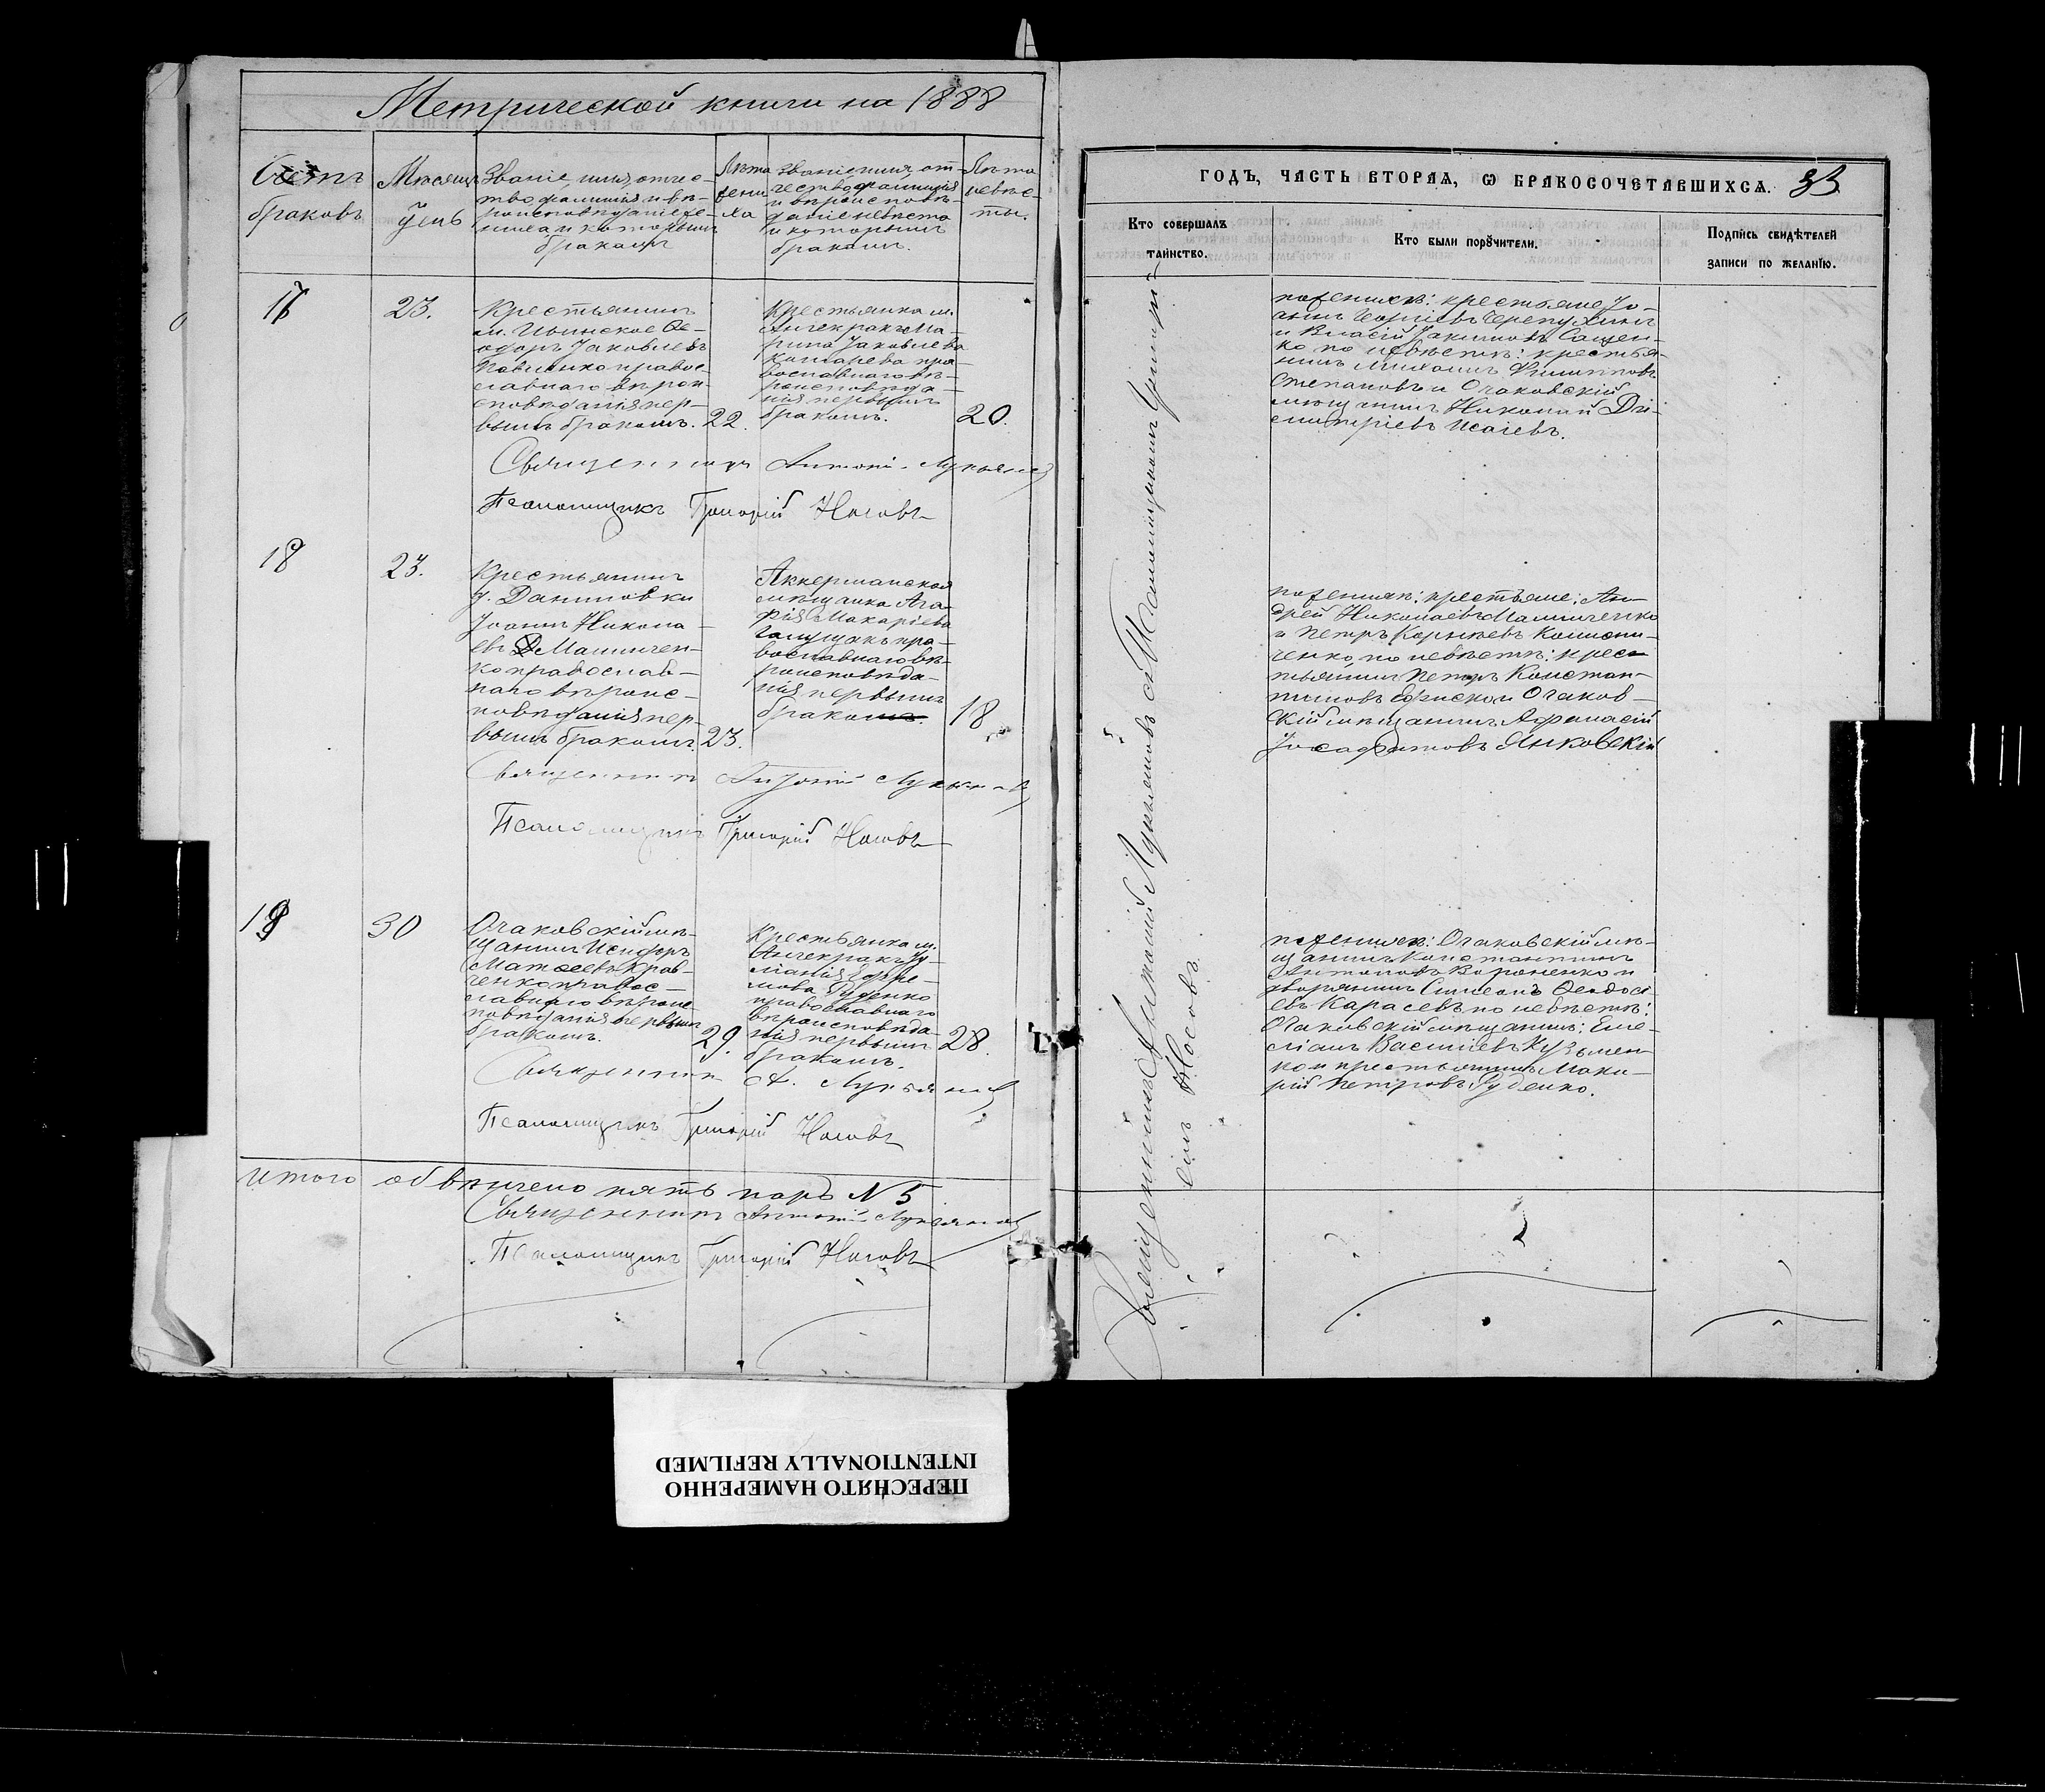 Метрической книги на 1888
Счетъ
браковъ
Мѣсяцъ
день
Званіе, имя, отче-
тво фамилія и вѣ-
роисповѣданіе же-
ниха, и которымъ
бракомъ
Лѣта
жени-
ха
Званіе имя, от-
чество фамилія
и вѣроисповѣ-
даніе невѣсты
и которымъ
бракомъ.
Лѣта
невѣс-
ты.
17
23.
Крестьянинъ
м. Ѳе-
одоръ Іаковлевъ
правос-
лавнаго вѣрои-
сповѣданія пер-
вымъ бракомъ.
22.
Крестьянка м.
Анчекракъ Ма-
рина Іаковлева
Комарева пра-
вославнаго вѣ-
роисповѣда-
нія первымъ
бракомъ.
20.
Священникъ Антоній Лукьяновъ
Псаломщикъ Григорій Носовъ
18
23.
Крестьянинъ
д. Даниловки
Іоаннъ Никола-
евъ Малиичен-
ко православ-
наго вѣроис-
повѣданія пер-
вымъ бракомъ.
23.
Аккерманская
мѣщанка Ага-
фія Макаріева
пра-
вославнаго вѣ-
роисповѣда-
нія первымъ
бракомъ.
18
Священникъ Антоній Лукьяновъ
Псаломщикъ Григорій Носовъ
19
30
Очаковскій мѣ-
щанинъ Исидоръ
Матѳеевъ Крав-
ченко правос-
лавнаго вѣроис-
повѣданія первымъ
бракомъ.
29.
Крестьянка м.
Анчекракъ Іу-
ліанія Ефре-
мова Руденко
православнаго
вѣроисповѣда-
нія первымъ
бракомъ.
28.
Священникъ А. Лукьяновъ
Псаломщикъ Григорій Носовъ
Итого обвѣнчено пять паръ N 5
Священникъ Антоній Лукьяновъ
Псаломщикъ Григорій Носовъ
ГОДЪ, ЧАСТЬ ВТОРАЯ, Ѡ БРАКОСОЧЕТАВШИХСЯ. 33
Кто совершалъ
таинство.
Кто были поручители.
Подпись свидѣтелей
записи по желанію.
Священникъ Антоній Лукьяновъ съ Псаломщикомъ Григорі-
емъ Носовъ.
по женихѣ: крестьяне Іо-
аннъ Георгіевъ Черепухинъ
и Власій Іакимовъ Сащен-
ко по невѣстѣ: крестья-
нинъ Михаилъ Филипповъ
Степановъ и Очаковскій
мѣщанинъ Николай Ди-
митріевъ Исаіевъ.
по женихѣ: крестьяне: Ан-
дрей Николаевъ Малииченко
и Петръ Корнѣевъ
ченко, по невѣстѣ: крес-
тьянинъ Петръ Констан-
тиновъ и Очаков-
скій мѣщанинъ Афанасій
Іосафатовъ Янковскій
по женихѣ: Очаковскій мѣ-
щанинъ Константинъ
Антоновъ Вороненко и
дворянинъ Симеонъ Ѳеодосі-
евъ Карасевъ по невѣстѣ:
Очаковскій мѣщанинъ: Еме-
ліанъ Василіевъ Кузьмен-
ко и крестьянинъ Мака-
рій Петровъ Руденко.
ПЕРЕСНЯТО НАМЕРЕННО
INTENTIONALLY REFILMED